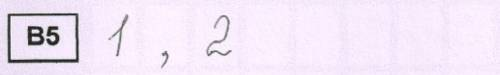 B5 1 , 2